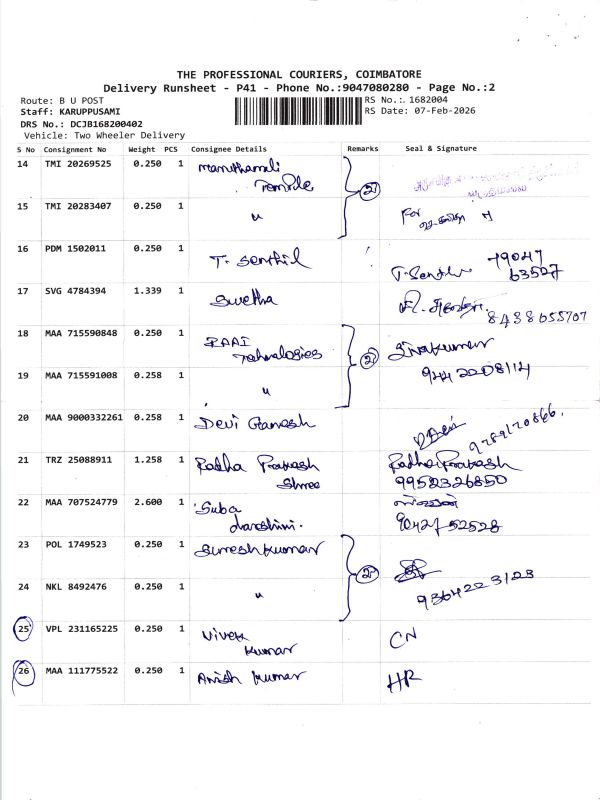 THE PROFESSIONAL COURIERS, COIMBATORE
Delivery Runsheet - P41 - Phone No.:9047080280 - Page No.:2
Route: B U POST
RS No.: 1682004
Staff: KARUPPUSAMI
RS Date: 07-Feb-2026
DRS No.: DCJB168200402
Vehicle: Two Wheeler Delivery
S No Consignment No Weight PCS Consignee Details Remarks Seal & Signature
14 TMI 20269525 0.250 1 Temple 2
15 TMI 20283407 0.250 1 " For
16 PDM 1502011 0.250 1 T. Senthil T. Senthil 79047
63527
17 SVG 4784394 1.339 1 Swetha 8438655707
18 MAA 715590848 0.250 1 Technologies 2 Sivakumar
19 MAA 715591008 0.258 1 " 944 2208114
20 MAA 9000332261 0.258 1 Devi Ganesh 9289120866.
21 TRZ 25088911 1.258 1 Radha Prakash Radha Prakash
Shree 9952326850
22 MAA 707524779 2.600 1 Suba
darshini. 9042752528
23 POL 1749523 0.250 1 Sureshkumar 2
24 NKL 8492476 0.250 1 " 9364223123
25 VPL 231165225 0.250 1 Vivek CN
Kumar
26 MAA 111775522 0.250 1 Anish Kumar HR